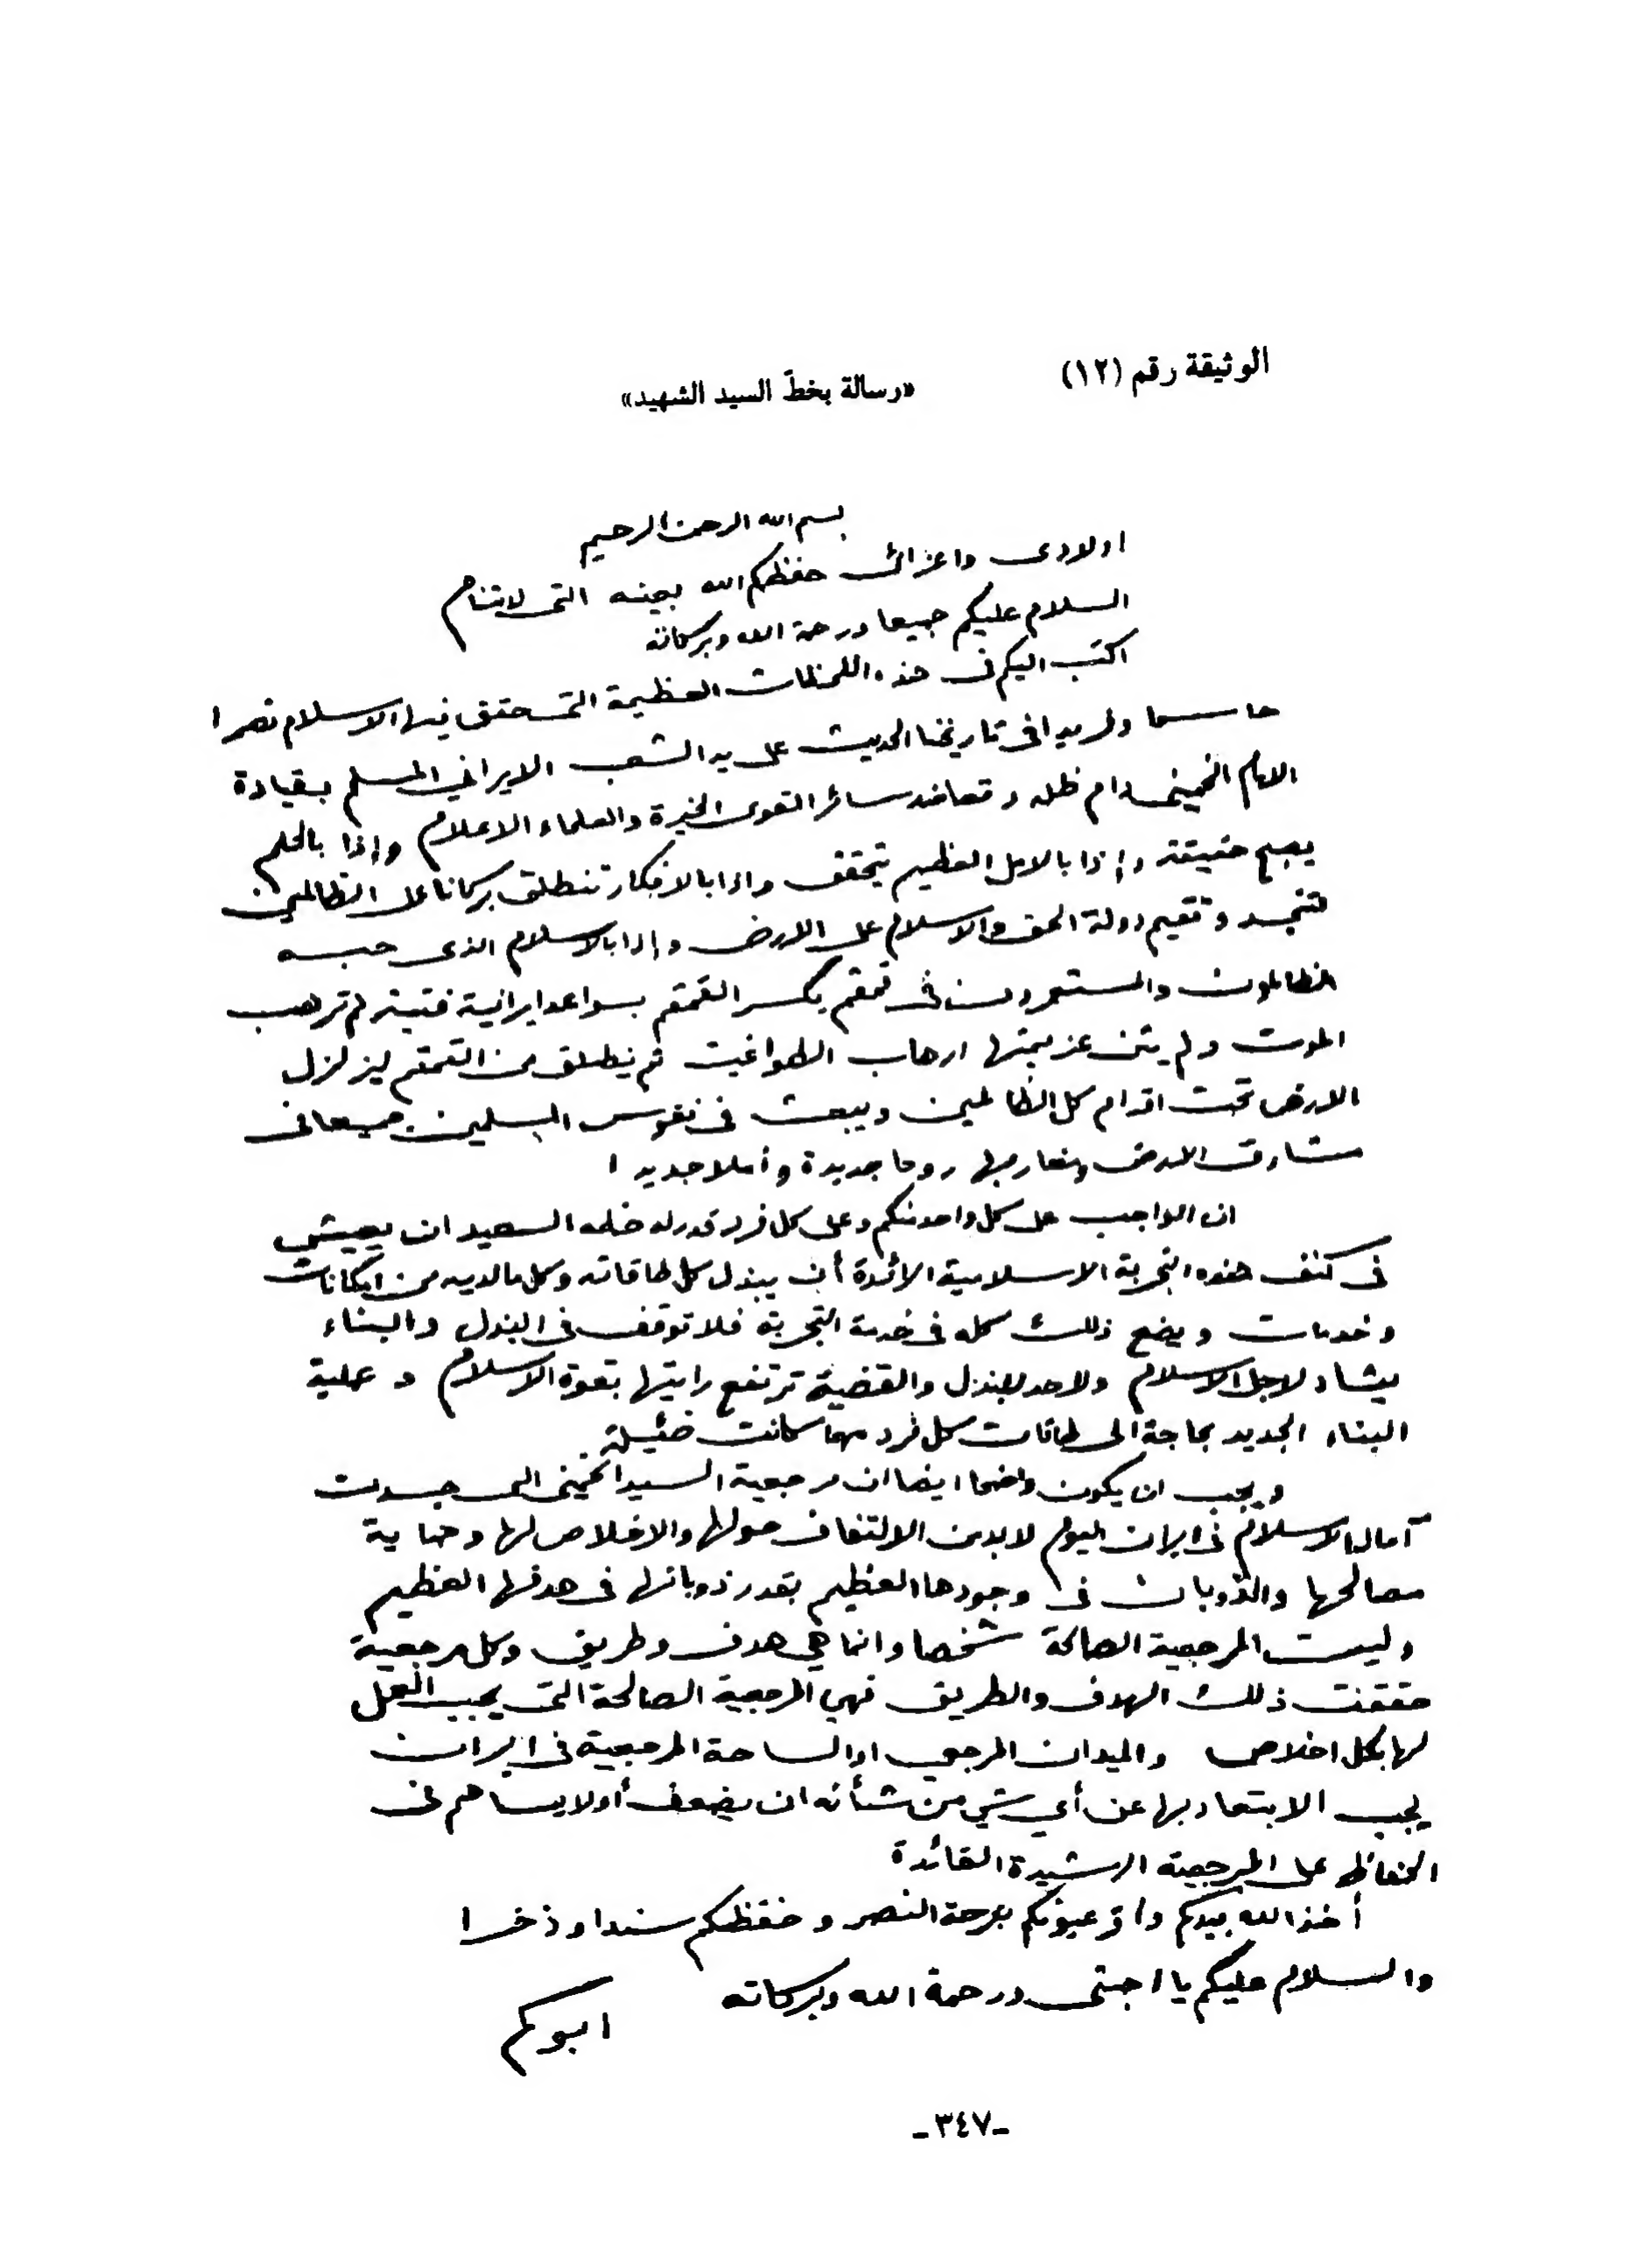 الوثيقة رقم (١٢)
«رسالة بخطّ السيد الشهيد»
بسم الله الرحمن الرحيم
اولادى واعزائى حفظكم الله بعينه التى لاتنام
السلام عليكم جميعا ورحمة الله وبركاته
اكتب اليكم فى هذه اللحظات العظيمة التى حقق فيها الاسلام نصرا
حاسما وفريدا فى تاريخنا الحديث على يد الشعب الايراني المسلم بقيادة
الامام الخمينى دام ظله وتعاضد سائر القوى الخيرة والعلماء الاعلام واذا بالحلم
يصبح حقيقة واذا بالامل العظيم يتحقق واذا بالافكار تنطلق بركانا على الظالمين
لتتجسد وتقيم دولة الحق والاسلام على الارض واذا بالاسلام الذى حبسه
الظالمون والمستعمرون فى قمقم يكسر القمقم بسواعد ايرانية فتية لم ترهب
الموت ولم يثن عزيمتها ارهاب الطواغيت ثم ينطلق من القمقم ليزلزل
الارض تحت اقدام كل الظالمين ويبعث فى نفوس المسلمين جميعا فى
مشارق الارض ومغاربها روحا جديدة وأملا جديدا
ان الواجب على كل واحد منكم وعلى كل فرد قدر له حظه السعيد ان يعيش
فى كنف هذه التجربة الاسلامية الرائدة أن يبذل كل طاقاته وكل مالديه من امكانات
وخدمات ويضع ذلك كله فى خدمة التجربة فلا توقف فى البذل والبناء
يشاد لاجل الاسلام ولاحد للبذل والقضية ترتفع رايتها بقوة الاسلام وعملية
البناء الجديد بحاجة الى طاقات كل فرد مهما كانت ضئيلة.
ويجب ان يكون واضحا ايضا ان مرجعية السيد الخمينى التى جسدت
آمال الاسلام فى ايران اليوم لابد من الالتفاف حولها والاخلاص لها وحماية
مصالحها والذوبان فى وجودها العظيم بقدر ذوبانها فى هدفها العظيم
وليست المرجعية الصالحة شخصا وانما هي هدف وطريق وكل مرجعية
حققت ذلك الهدف والطريق فهي المرجعية الصالحة التى يجب العمل
لها بكل اخلاص والميدان المرجعي او الساحة المرجعية فى ايران
يجب الابتعاد بها عن أي شي من شأنه ان يضعف أولا يساهم فى
الحفاظ على المرجعية الرشيدة القائدة
أخذ الله بيدكم واقر عيونكم بفرحة النصر وحفظكم سندا وذخرا
والسلام عليكم يا احبتى ورحمة الله وبركاته
ابوكم
-٣٤٧-